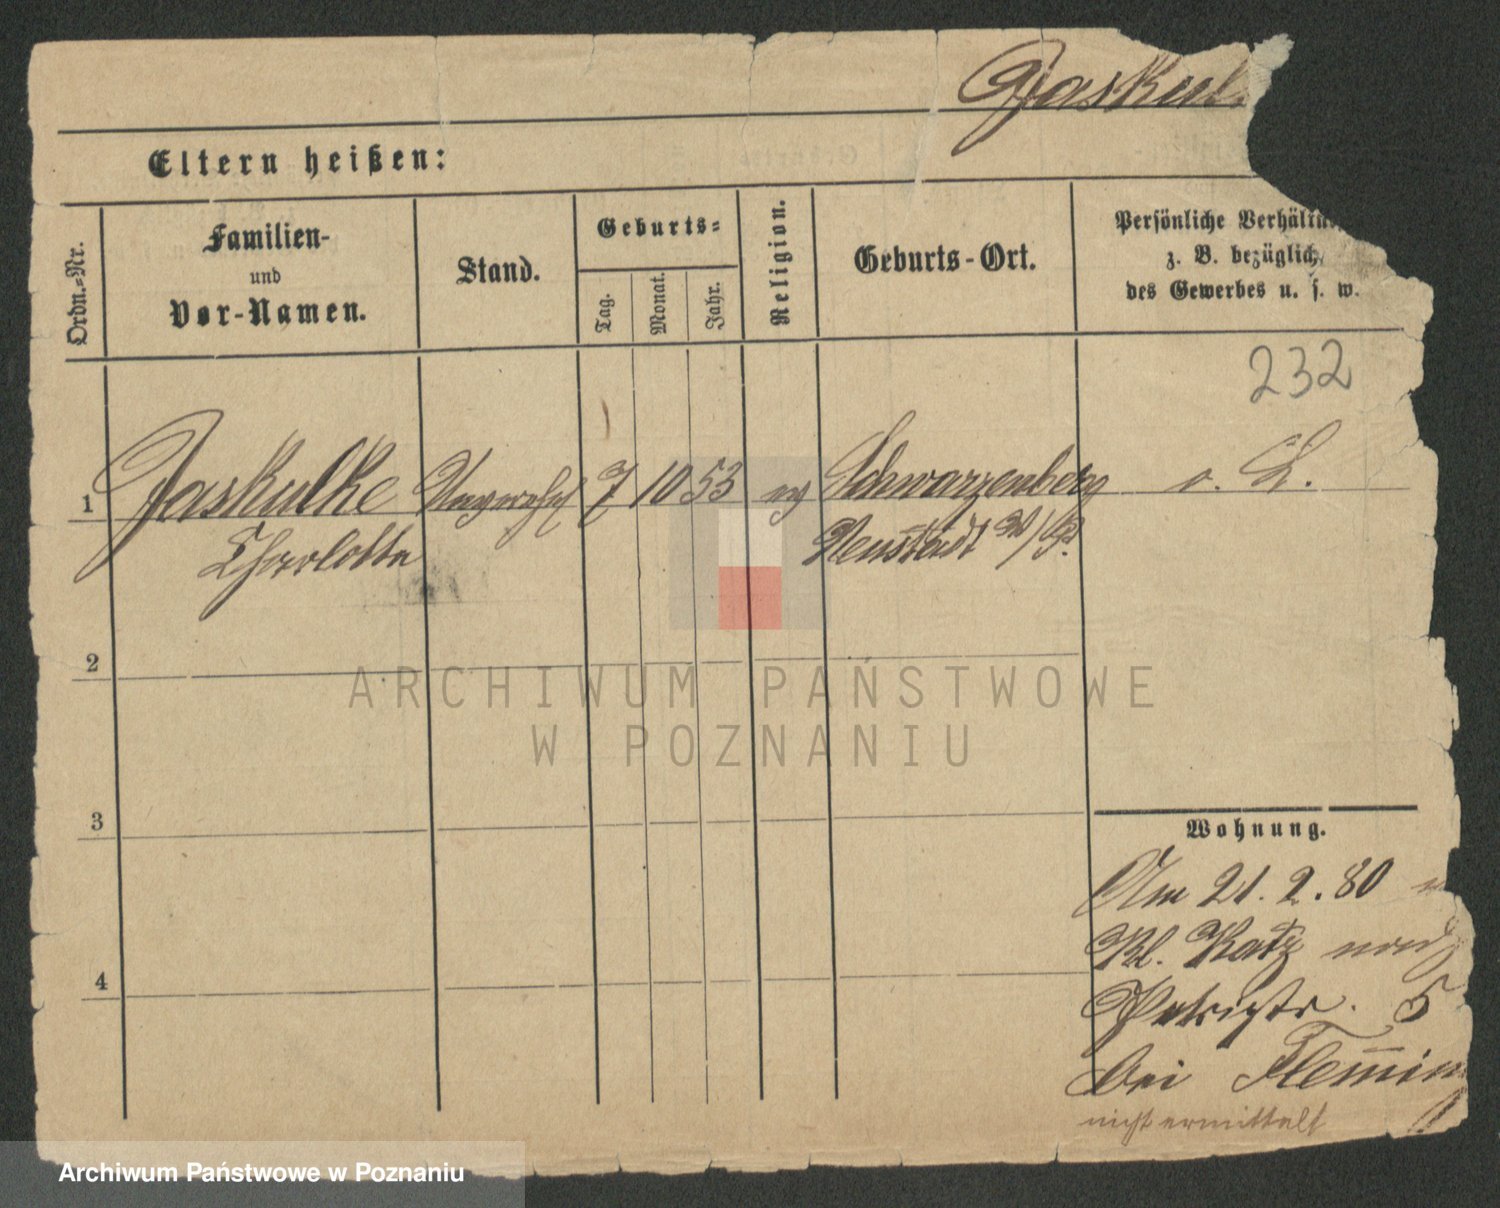 Jaskul
Eltern heißen:
Ordn.-Nr.
Familien-
und
Vor-Namen.
Stand.
Geburts-
Tag.
Monat.
Jahr.
Religion.
Geburts-Ort.
Persönliche Verhältn
z. B. bezüglich
des Gewerbes u. s. w.
232
1 Jaskulke Unverehl 7 10 53 ev Schwarzenberg o. L.
Charlotte Neustadt W/Pr.
2
3
4
Wohnung.
Am 21. 2. 80
Kl. Katz nach
Petristr. 5
bei Flemmin
nicht ermittelt
ARCHIWUM PAŃSTWOWE
W POZNANIU
Archiwum Państwowe w Poznaniu